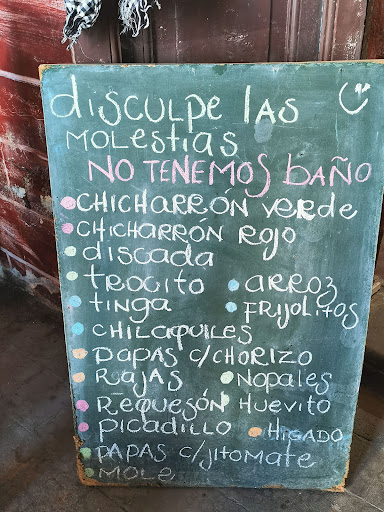 disculpe las
molestias
NO TENEMOS baño
CHICHARRÓN verde
CHICHARRÓN Rojo
discada
trocito arroz
tinga Frijolitos
CHILAQUILES
PAPAS c/CHORIZO
RAJAS Nopales
Requesón Huevito
Picadillo HIGADO
PAPAS c/jitomate
MOLE